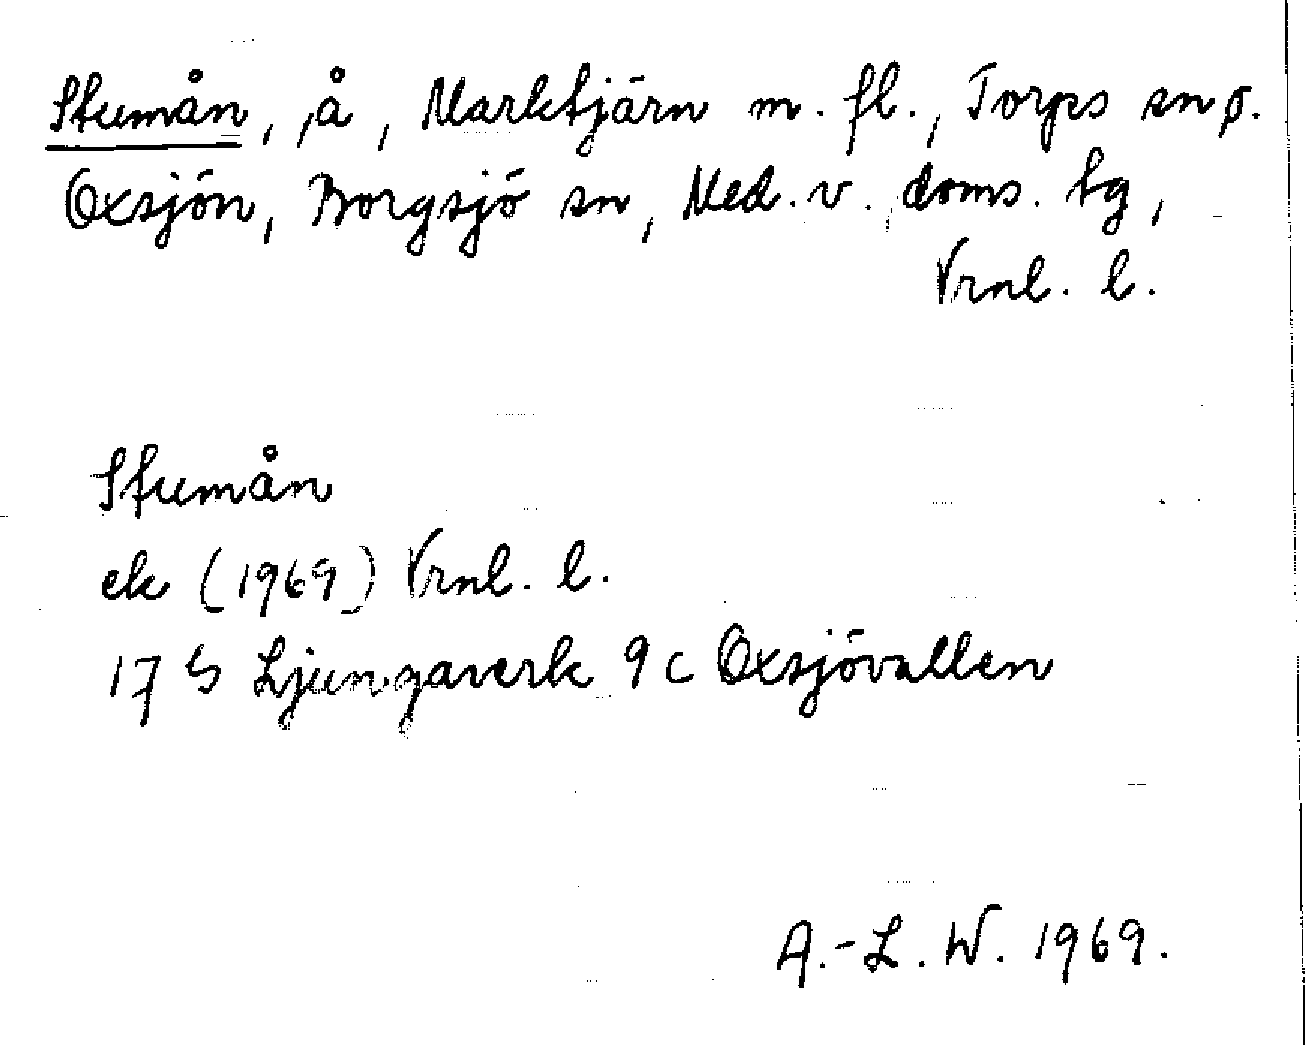 Stumån, å, Marktjärn m. fl., Torps sn o.
Oxsjön, Borgsjö sn, Med. v. doms. tg,
Vrnl. l.
Stumån
ek (1969) Vrnl. l.
17 G Ljungaverk 9 c Oxsjövallen
A.-L. W. 1969.